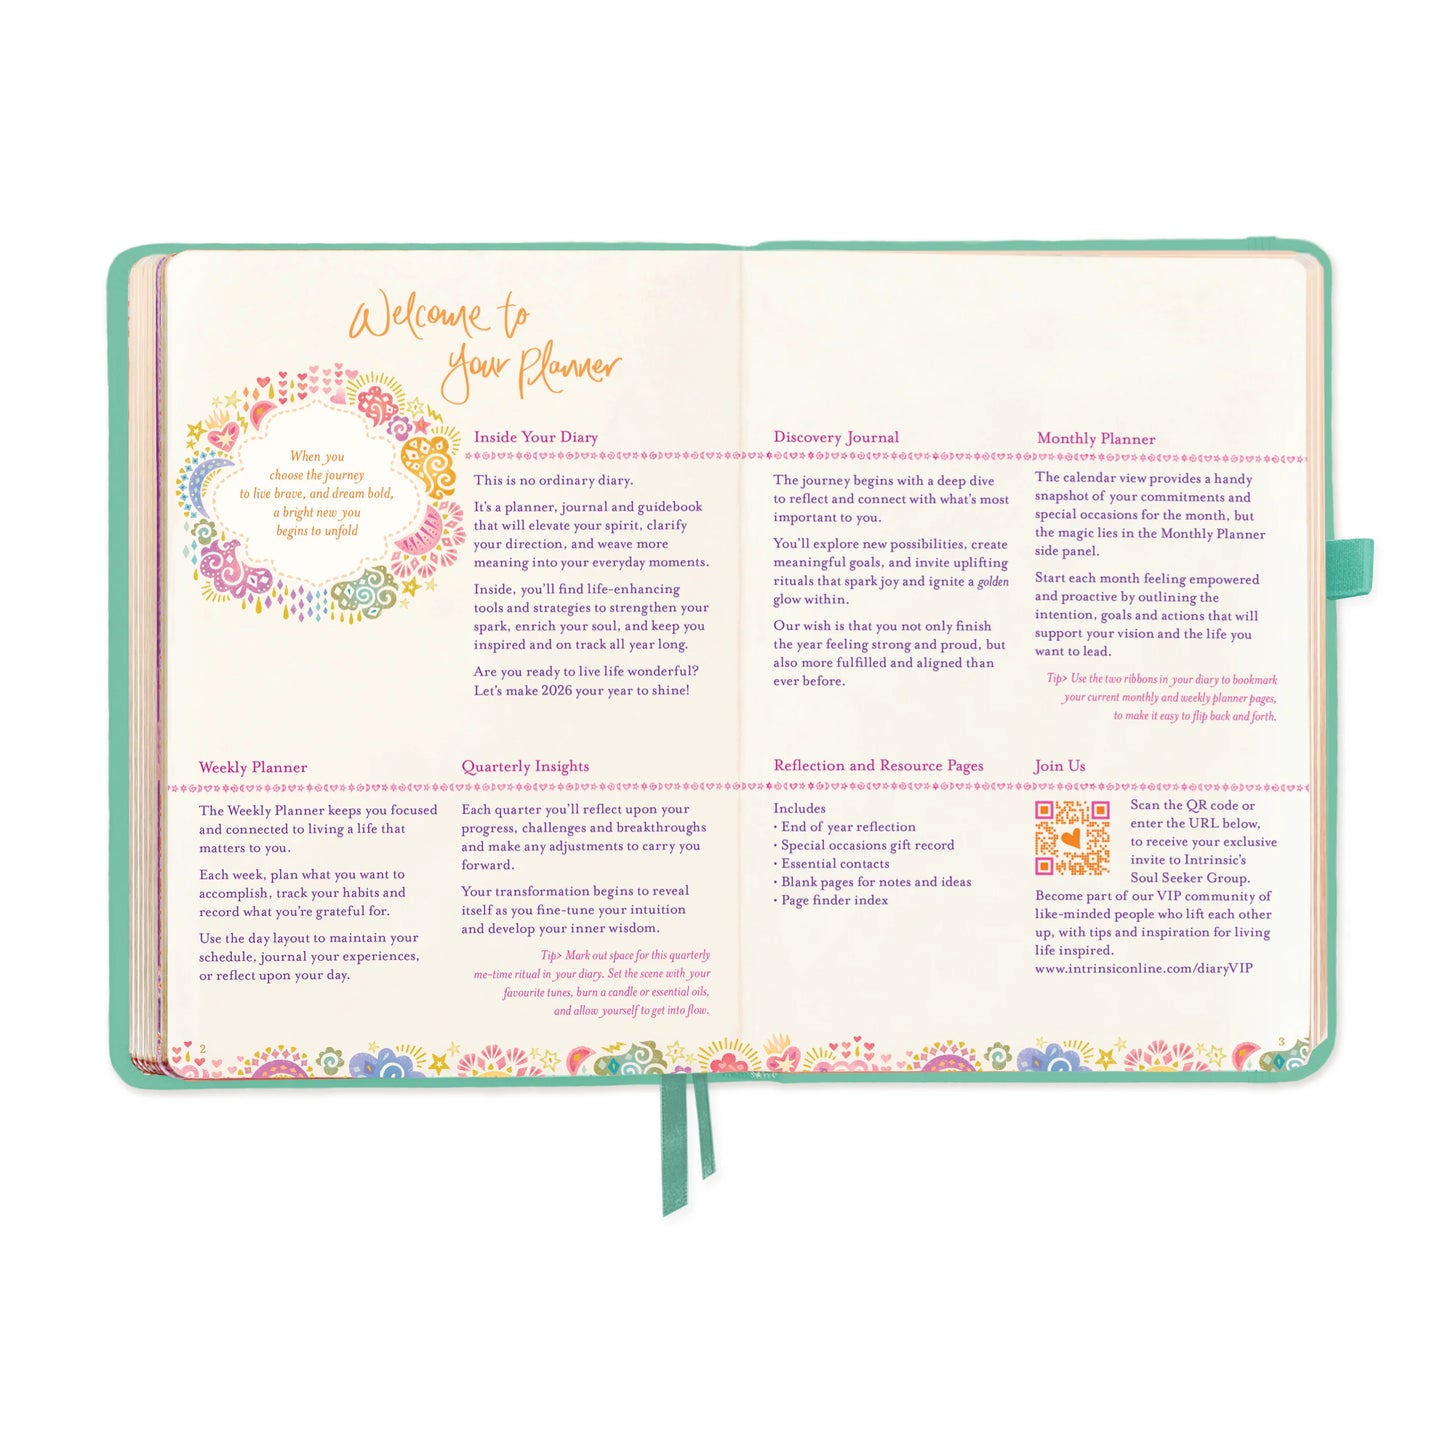 Welcome to
Your Planner
When you
choose the journey
to live brave, and dream bold,
a bright new you
begins to unfold
Inside Your Diary
This is no ordinary diary.
It's a planner, journal and guidebook
that will elevate your spirit, clarify
your direction, and weave more
meaning into your everyday moments.
Inside, you'll find life-enhancing
tools and strategies to strengthen your
spark, enrich your soul, and keep you
inspired and on track all year long.
Are you ready to live life wonderful?
Let's make 2026 your year to shine!
Weekly Planner
The Weekly Planner keeps you focused
and connected to living a life that
matters to you.
Each week, plan what you want to
accomplish, track your habits and
record what you're grateful for.
Use the day layout to maintain your
schedule, journal your experiences,
or reflect upon your day.
Quarterly Insights
Each quarter you'll reflect upon your
progress, challenges and breakthroughs
and make any adjustments to carry you
forward.
Your transformation begins to reveal
itself as you fine-tune your intuition
and develop your inner wisdom.
Tip> Mark out space for this quarterly
me-time ritual in your diary. Set the scene with your
favourite tunes, burn a candle or essential oils,
and allow yourself to get into flow.
2
Discovery Journal
The journey begins with a deep dive
to reflect and connect with what's most
important to you.
You'll explore new possibilities, create
meaningful goals, and invite uplifting
rituals that spark joy and ignite a golden
glow within.
Our wish is that you not only finish
the year feeling strong and proud, but
also more fulfilled and aligned than
ever before.
Monthly Planner
The calendar view provides a handy
snapshot of your commitments and
special occasions for the month, but
the magic lies in the Monthly Planner
side panel.
Start each month feeling empowered
and proactive by outlining the
intention, goals and actions that will
support your vision and the life you
want to lead.
Tip> Use the two ribbons in your diary to bookmark
your current monthly and weekly planner pages,
to make it easy to flip back and forth.
Reflection and Resource Pages
Includes
• End of year reflection
• Special occasions gift record
• Essential contacts
• Blank pages for notes and ideas
• Page finder index
Join Us
Scan the QR code or
enter the URL below,
to receive your exclusive
invite to Intrinsic's
Soul Seeker Group.
Become part of our VIP community of
like-minded people who lift each other
up, with tips and inspiration for living
life inspired.
www.intrinsiconline.com/diaryVIP
3